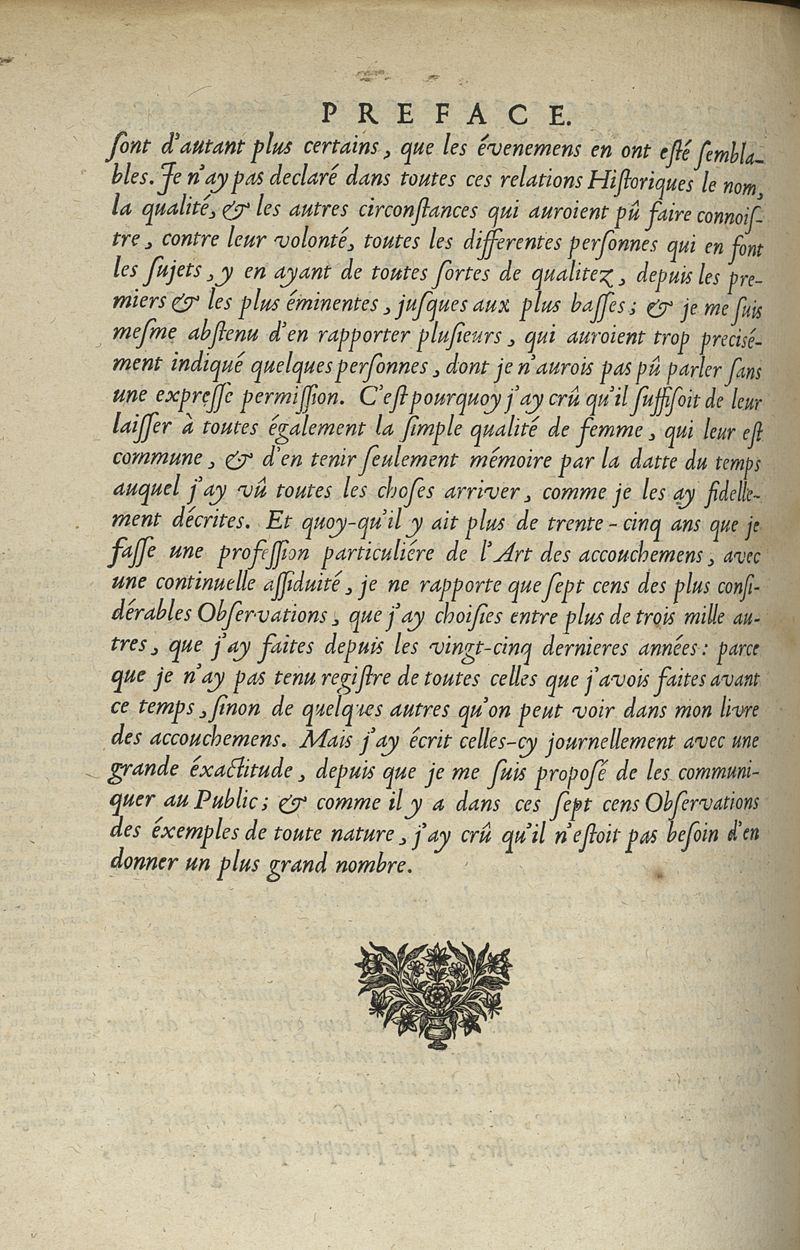 PREFACE.
ſont d'autant plus certains, que les évenemens en ont eſté ſembla-
bles. Je n'ay pas declaré dans toutes ces relations Hiſtoriques le nom,
la qualité, & les autres circonſtances qui auroient pû faire connoiſ-
tre, contre leur volonté, toutes les differentes perſonnes qui en ſont
les ſujets, y en ayant de toutes ſortes de qualitez, depuis les pre-
miers & les plus éminentes, juſques aux plus baſſes; & je me ſuis
meſme abſtenu d'en rapporter pluſieurs, qui auroient trop precisé-
ment indiqué quelques perſonnes, dont je n'aurois pas pû parler ſans
une expreſſe permiſſion. C'eſt pourquoy j'ay crû qu'il ſuffiſoit de leur
laiſſer à toutes également la ſimple qualité de femme, qui leur eſt
commune, & d'en tenir ſeulement mémoire par la datte du temps
auquel j'ay vû toutes les choſes arriver, comme je les ay fidelle-
ment décrites. Et quoy-qu'il y ait plus de trente-cinq ans que je
faſſe une profeſſion particuliére de l'Art des accouchemens, avec
une continuelle aſſiduité, je ne rapporte que ſept cens des plus conſi-
dérables Obſervations, que j'ay choiſies entre plus de trois mille au-
tres, que j'ay faites depuis les vingt-cinq dernieres années: parce
que je n'ay pas tenu regiſtre de toutes celles que j'avois faites avant
ce temps, ſinon de quelques autres qu'on peut voir dans mon livre
des accouchemens. Mais j'ay écrit celles-cy journellement avec une
grande éxactitude, depuis que je me ſuis propoſé de les communi-
quer au Public; & comme il y a dans ces ſept cens Obſervations
des éxemples de toute nature, j'ay crû qu'il n'eſtoit pas beſoin d'en
donner un plus grand nombre.